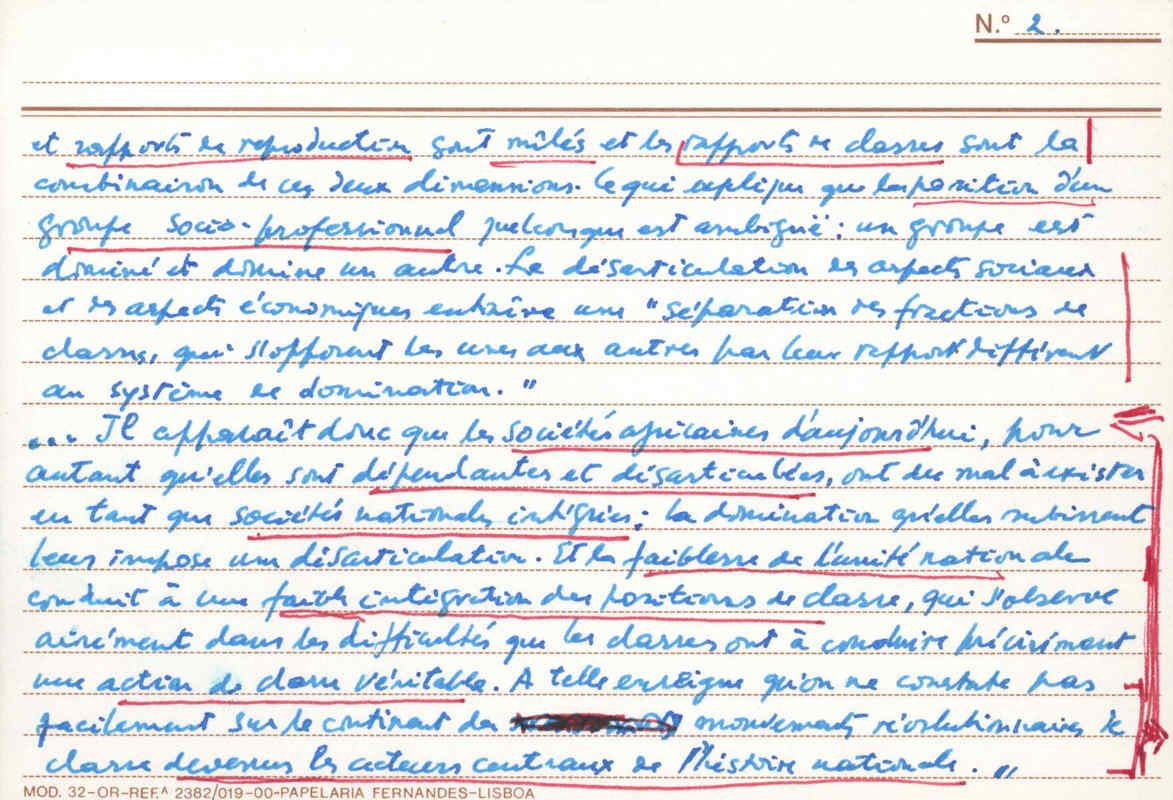 N.º 2.
et rapports de reproduction sont mêlés et les rapports de classes sont la
combinaison de ces deux dimensions. Ce qui explique que la position d'un
groupe socio-professionnel quelconque est ambiguë : un groupe est
dominé et domine un autre. La désarticulation des aspects sociaux
et des aspects économiques entraîne une "séparation des fractions de
classes, qui s'opposent les unes aux autres par leur rapport différent
au système de domination."
... Il apparaît donc que les sociétés africaines d'aujourd'hui, pour
autant qu'elles sont dépendantes et désarticulées, ont du mal à exister
en tant que sociétés nationales intégrées ; la domination qu'elles subissent
leur impose une désarticulation. Et la faiblesse de l'unité nationale
conduit à une faible intégration des positions de classe, qui s'observe
aisément dans les difficultés que les classes ont à conduire précisément
une action de classe véritable. A telle enseigne qu'on ne constate pas
facilement sur le continent des mouvements révolutionnaires de
classe devenus les acteurs centraux de l'histoire nationale. "
MOD. 32-OR-REF.ᴬ 2382/019-00-PAPELARIA FERNANDES-LISBOA